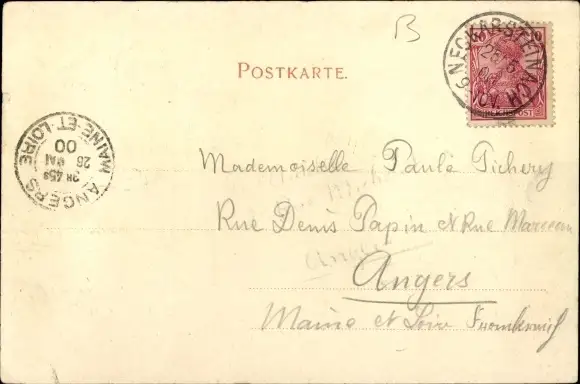 B
NECKARSTEINACH
POSTKARTE.
REICHSPOST
MAINE ET LOIRE
ANGERS
26
MAI
00
Mademoiselle Paule Pichery
Rue Denis Papin et Rue Marceau
Angers
Maine et Loire Frankreich